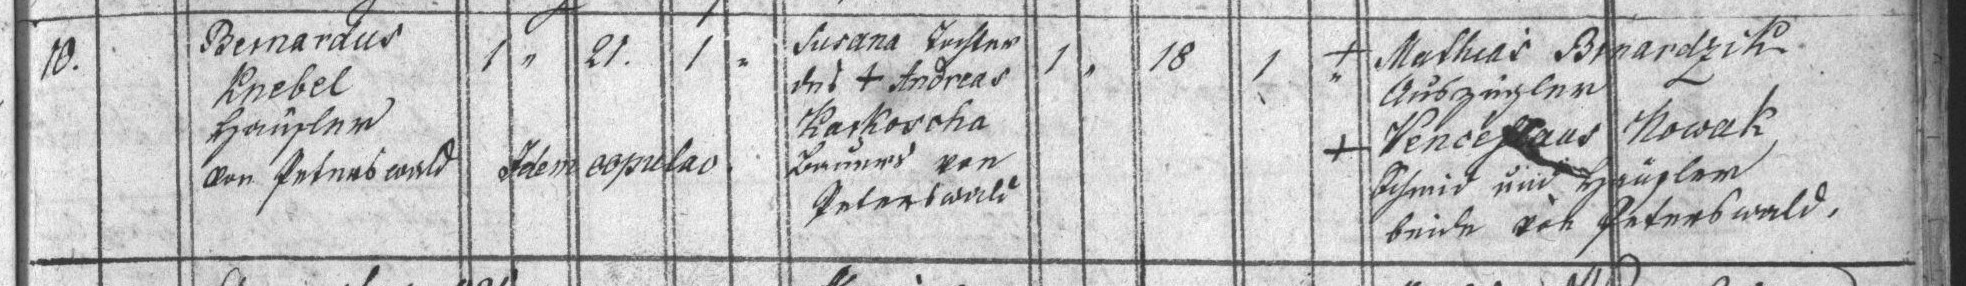 10.
Bernardus
Knebel
Häusler
von Peterswald
1 " 21. 1 "
Idem copulav.
Susana Tochter
des + Andreas
Karkoscha
Bauers von
Peterswald
1 " 18 1 "
+ Mathias Bernardzik
Auszügler
+ Venceslaus Nowak
Schmid und Häusler
beide von Peterswald.